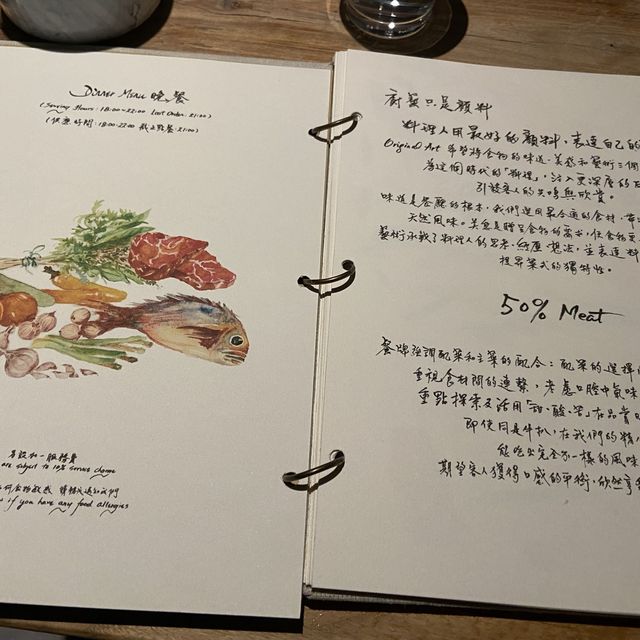 Dinner Menu 晚餐
(Serving Hours: 18:00~22:00 Last Order: 21:00)
(供應時間: 18:00-22:00 最後點餐 21:00)
另設加一服務費
are subject to 10% service charge
食物敏感 請務必通知我們
if you have any food allergies
食材只是顏料
料理人用最好的顏料，表達自己的
Original Art 希望將食物的味道、美感和藝術三個
為這個時代的「料理」，注入更深層的
引發客人的共鳴與欣賞。
味道是餐廳的根本，我們選用最合適的食材，帶
天然風味。美感是贈予食物的靈魂，使食物更
藝術承載了料理人的思考、經歷、想法，並表達料
理界菜式的獨特性。
50% Meat
餐牌強調配菜和主菜的配合：配菜的選擇
重視食材間的連繫，考慮口腔中氣味
重點探索及活用「甜、酸、苦」在品嘗
即使是牛扒，在我們的精
能吃出完全不一樣的風味
期望客人獲得口感的平衡，欣然享